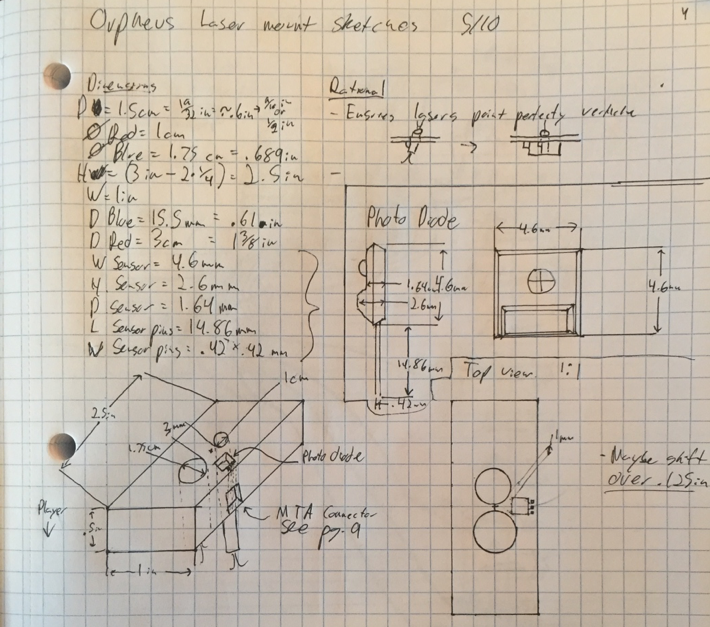 Orpheus Laser mount sketches 5/10
4
Dimensions
D = 1.5cm = 19/32 in = ~.6in → 5/8 in or 1/2 in
Ø Red = 1cm
Ø Blue = 1.75 cm = .689in
H = (3in - 2·1/4) = 2.5in
W = 1in
D Blue = 15.5mm = .61in
D Red = 3cm = 1 3/8 in
W Sensor = 4.6mm
H Sensor = 2.6mm
D sensor = 1.64mm
L Sensor pins = 14.86mm
W Sensor pins = .42 × .42 mm
Rational
- Ensures lasers point perfectly verticle
Photo Diode
4.6mm
1.64mm
4.6mm
2.6mm
4.6mm
14.86mm
.42mm
Top view 1:1
1mm
- Maybe shift
over .125in
2.5in
1cm
3mm
1.75cm
Photo diode
MTA Connector
See pg. 9
Player
.5in
1in